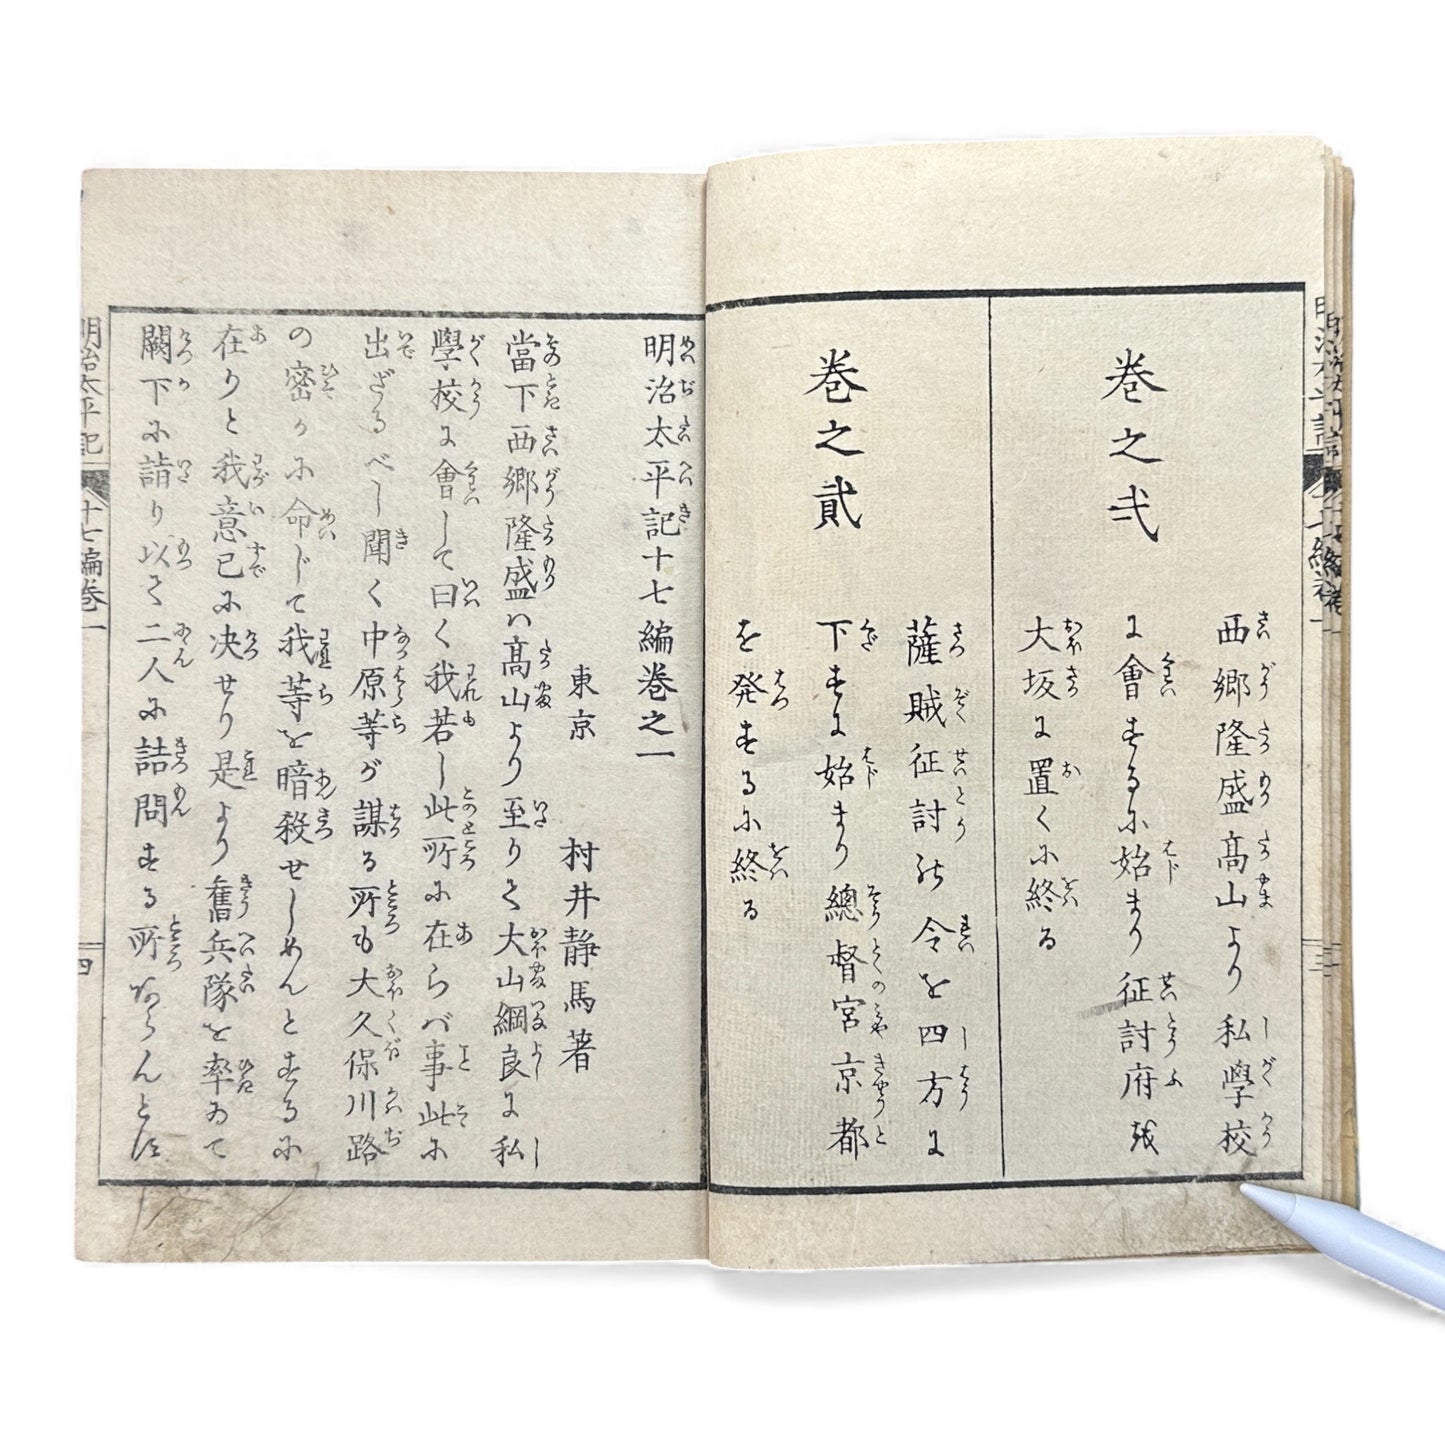 巻之弌
西郷隆盛高山より私學校
に會するに始まり征討府を
大坂に置くに終る
巻之貳
薩賊征討の令を四方に
下すに始まり總督宮京都
を発するに終る
明治太平記十七編巻之一
東京 村井静馬著
當下西郷隆盛ハ髙山より至りて大山綱良に私
學校に會して曰く我若し此所に在らバ事此に
出ざるべし聞く中原等が謀る所も大久保川路
の密カに命じて我等を暗殺せしめんとするに
在りと我意已に決せり是より奮兵隊を率ゐて
闕下に詣り以て二人に詰問する所あらんとは
明治太平記
十七編巻一
四